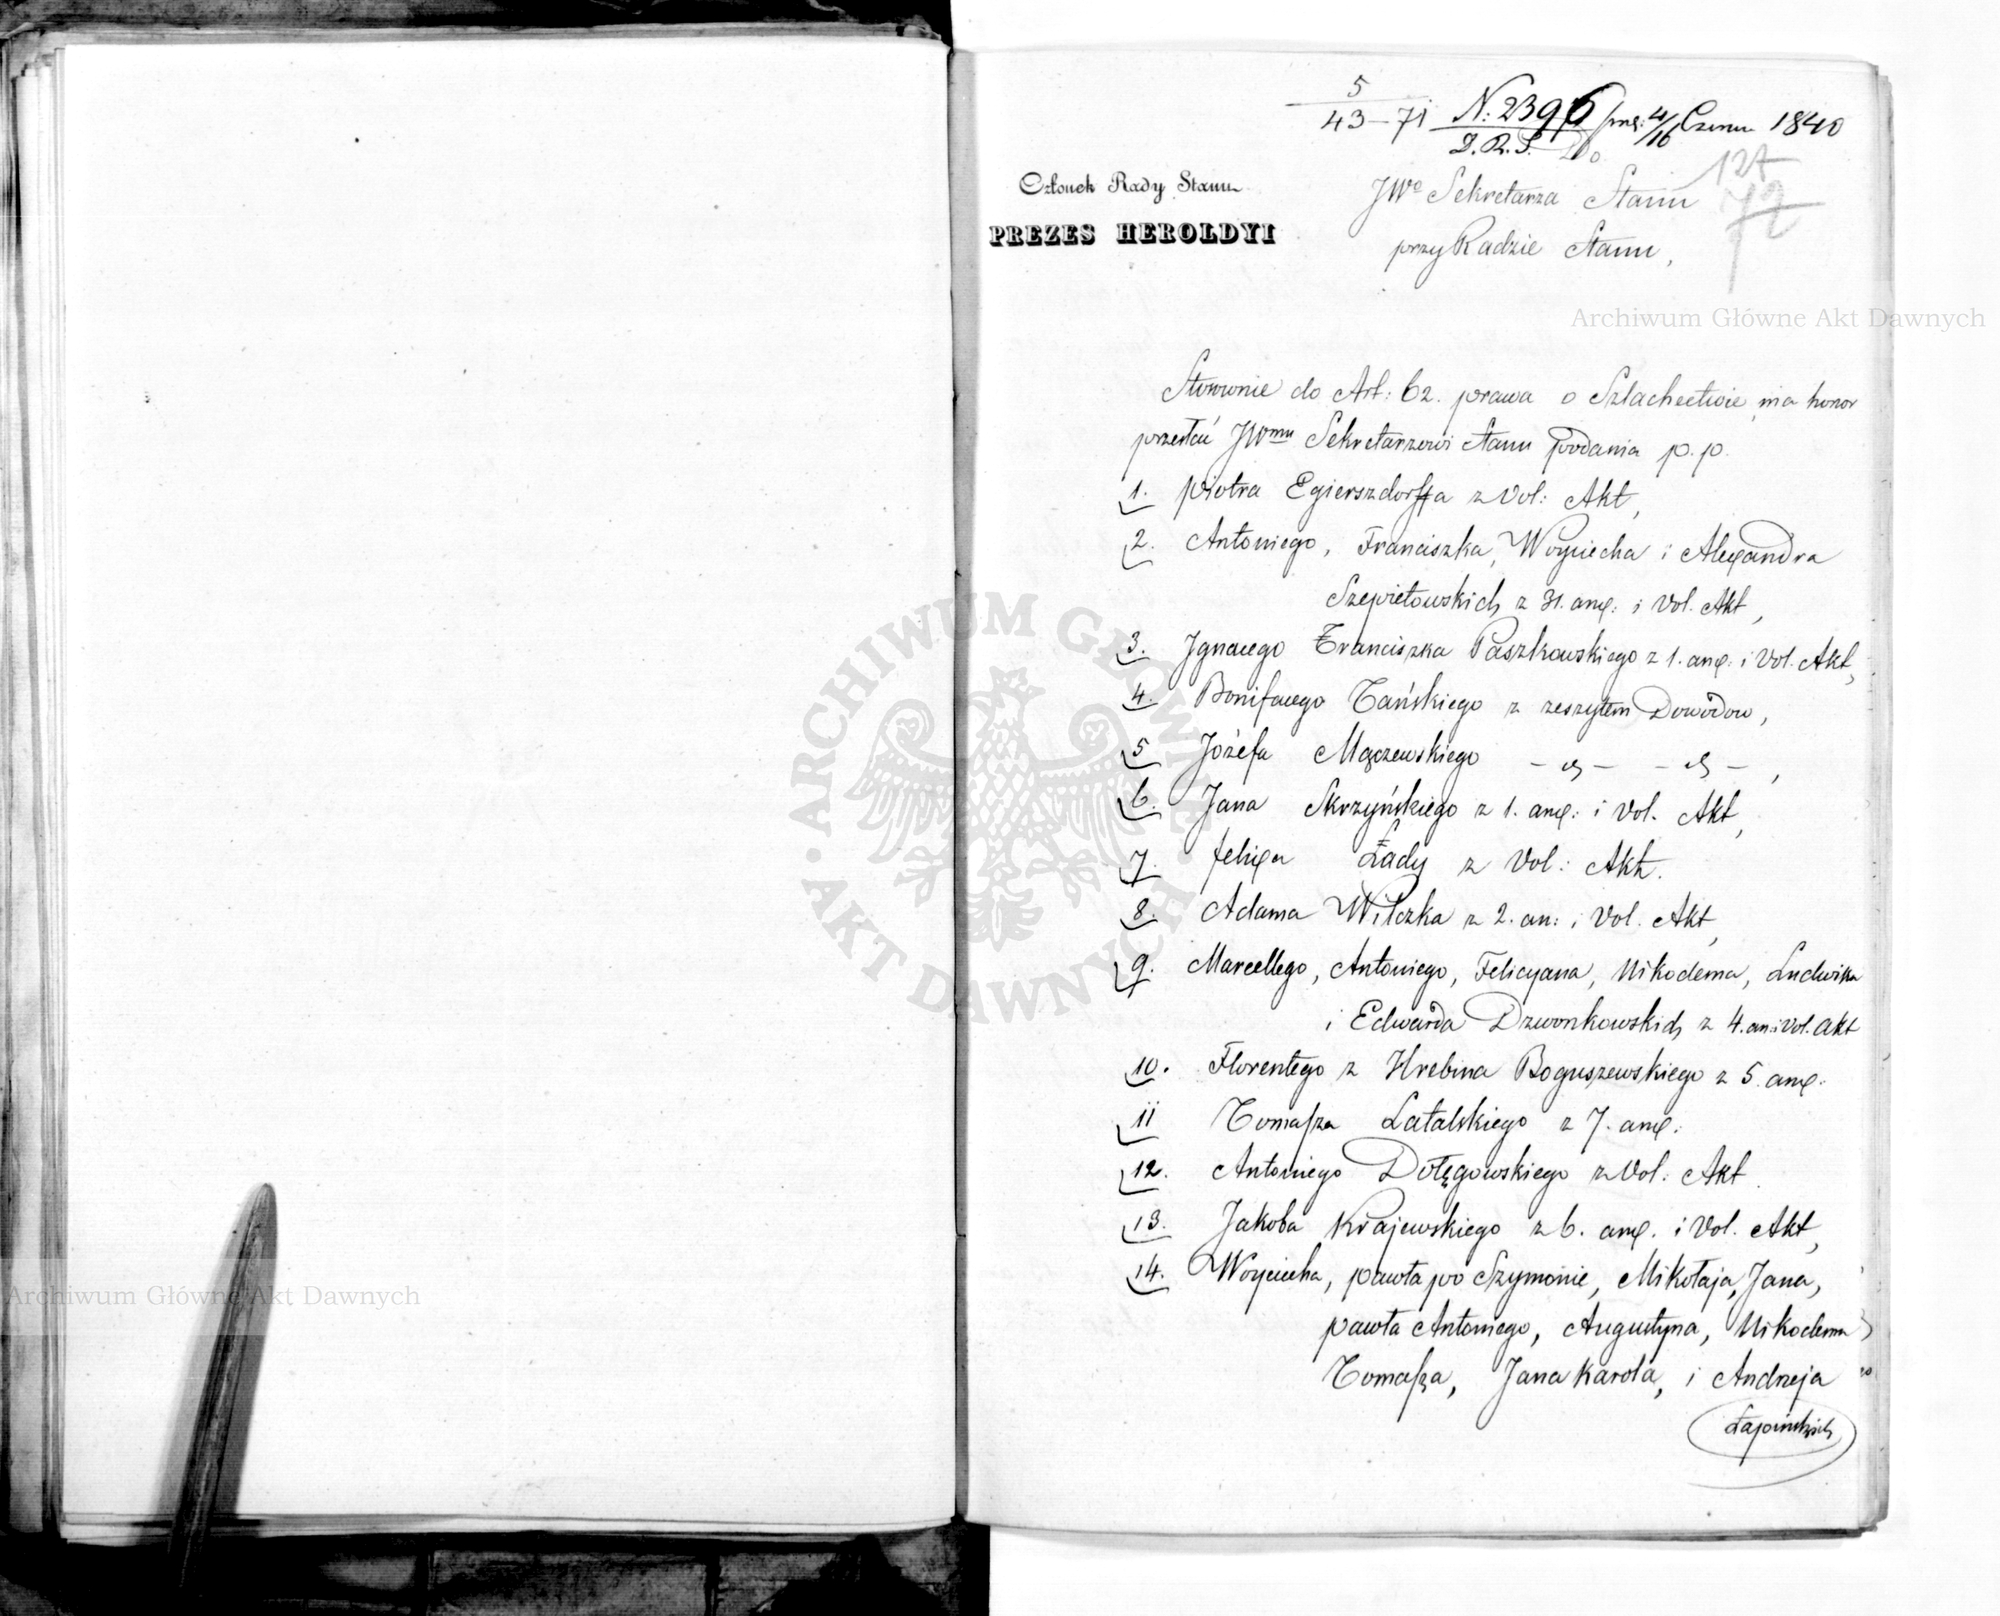 5
43 – 71 N: 2396 4/16 Czerw 1840
D. R. S.
127
72
Członek Rady Stanu
PREZES HEROLDYI
JWo Sekretarza Stanu
przy Radzie Stanu,
Archiwum Główne Akt Dawnych
Stosownie do Art: 62. prawa o Szlachectwie ma honor
przesłać JWmu Sekretarzowi Stanu podania p.p.
1. Piotra Egierszdorffa z Vol: Akt,
2. Antoniego, Franciszka, Woyciecha i Alexandra
Szepietowskich z 31. anx: i Vol. Akt,
3. Ignacego Franciszka Paszkowskiego z 1. anx: i Vol. Akt,
4. Bonifacego Tańskiego z zeszytem Dowodow,
5 Jozefa Mączewskiego – „ – – „ – ,
6. Jana Skrzyńskiego z 1. anx: i Vol. Akt,
7. Felixa Łady z Vol: Akt.
8. Adama Wilczka z 2. an: i Vol. Akt,
9. Marcellego, Antoniego, Felicyana, Nikodema, Ludwika
i Edwarda Dzwonkowskich z 4. an: i Vol. Akt
10. Florentego z Hrebina Boguszewskiego z 5. anx:
11 Tomasza Latalskiego z 7. anx:
12. Antoniego Dołęgowskiego z Vol: Akt.
13. Jakoba Krajewskiego z 6. anx. i Vol. Akt,
14. Woyciecha, Pawła po Szymonie, Mikołaja, Jana,
Pawła Antoniego, Augustyna, Nikodema
Tomasza, Jana Karola, i Andrzeja
Łapińskich
ARCHIWUM GŁÓWNE AKT DAWNYCH
Archiwum Główne Akt Dawnych